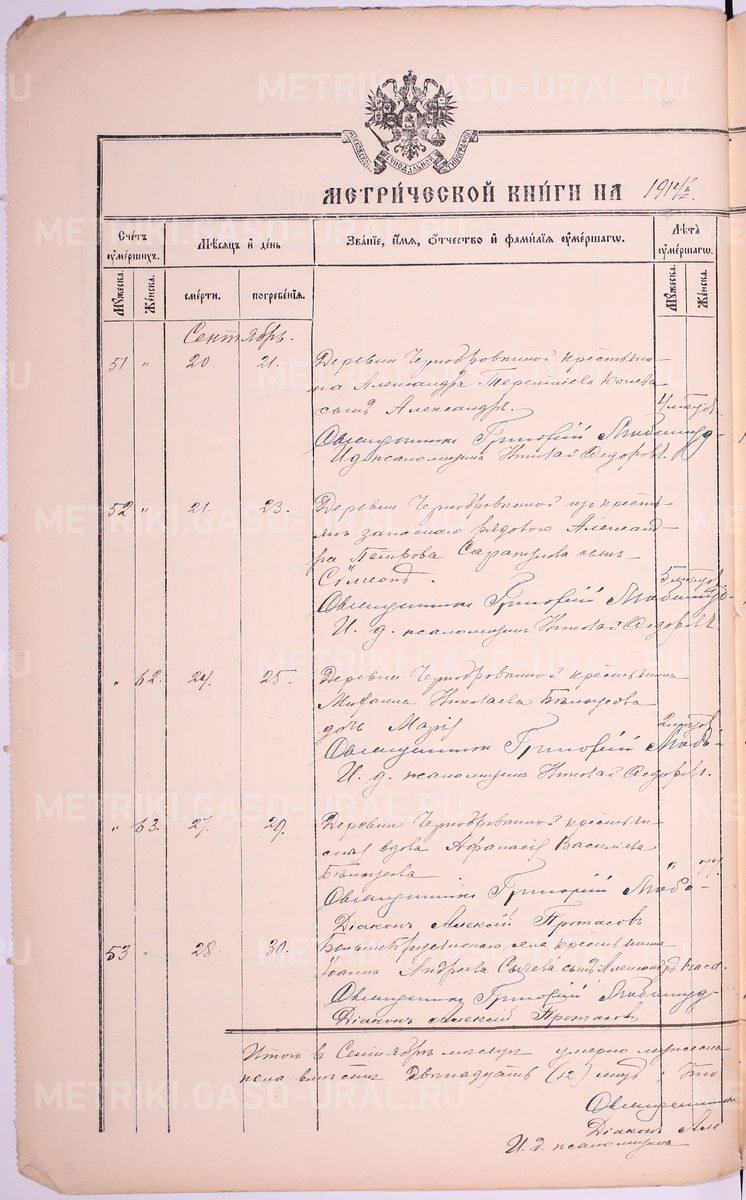 МОСКОВСКОЙ СѴНОДАЛЬНОЙ ТИПОГРАФІИ
МЕТРИ́ЧЕСКОЙ КНИ́ГИ НА 1914 г.
Сче́тъ оу҆ме́ршихъ.
Мꙋ́жеска.
Же́нска.
Мѣ́сѧцъ и҆ де́нь
сме́рти.
погребе́нїѧ.
Зва́нїе, и҆́мѧ, ѻ҆́тчество и҆ фамилїѧ оу҆ме́ршагѡ.
Лѣ́та оу҆ме́ршагѡ.
Мꙋ́жеска.
Же́нска.
Сентябрь.
51 " 20. 21. Деревни Чернобровкиной крестьяни-
на Александра Терентіева
сынъ Александръ.
Священникъ Григорій
И.д. псаломщика Николай Ѳедоровъ.
52 " 21. 23. Деревни Чернобровкиной изъ кресть-
янъ запаснаго рядового Александ-
ра Петрова Сарапулова сынъ
Сѵмеонъ. 5
Священникъ Григорій
И. д. псаломщика Николай Ѳедоровъ
" 62. 24. 25. Деревни Чернобровкиной крестьянина
Михаила Николаева Бѣлоусова
дочь Марія
Священникъ Григорій
И. д. псаломщика Николай Ѳедоровъ.
" 63. 27. 29. Деревни Чернобровкиной крестьян-
ская вдова Афанасія Василіева
Бѣлоусова " 77.
Священникъ Григорій
Діаконъ Алексій Протасовъ
53 " 28. 30. крестьянина
Іоанна Андреева Сычева сынъ Александръ
Священникъ Григорій
Діаконъ Алексій Протасовъ
Итого в Сентябрѣ мѣсяцѣ умерло мужеска
женска вмѣстѣ двѣнадцать (12) лицъ, что
Священникъ
Діаконъ Але
И. д. псаломщика
METRIKI.GASO-URAL.RU